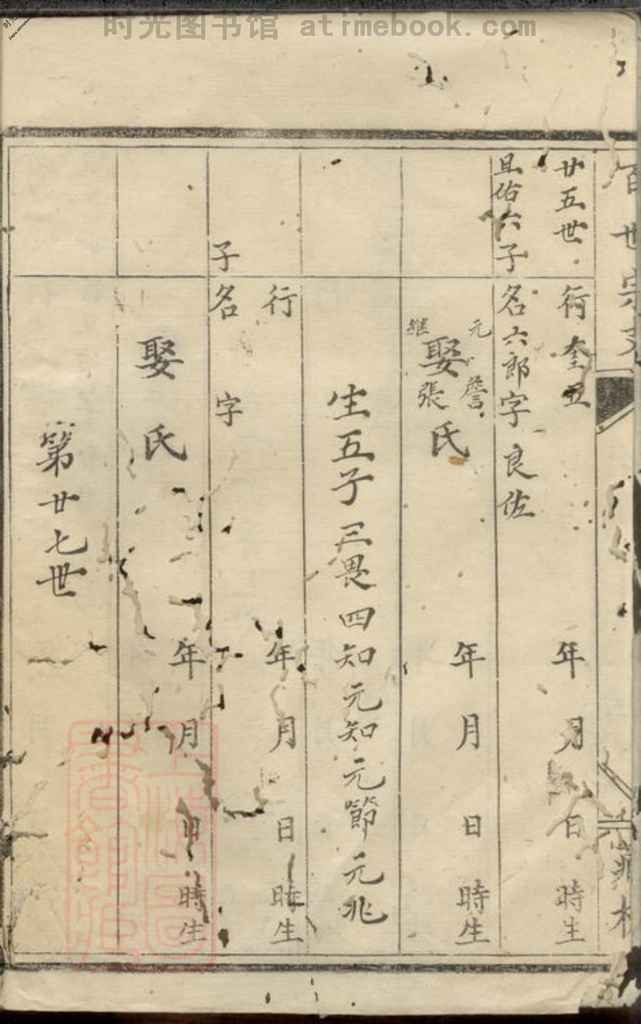 时光图书馆 atimebook.com
百世宗支
廿五世
行奎五
年月日時生
且佑六子
名六郎字良佐
元詹
娶氏
繼張
年月日時生
生五子三畏四知元知元節元兆
行
年月日時生
子
名字
娶氏
年月日時生
第廿七世